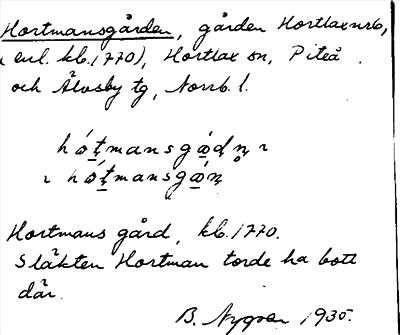 Hortmansgården, gården Hortlax nr 6,
(enl. kb. 1770), Hortlax sn, Piteå
och Älvsby tg, Norrb. l.
hǿt̠mansgǿ̠dn̥ ı
ı hǿt̠mansgǿ̠n̠
Hortmans gård, kb. 1770.
Släkten Hortman torde ha bott
där.
B. Nygren 1935.